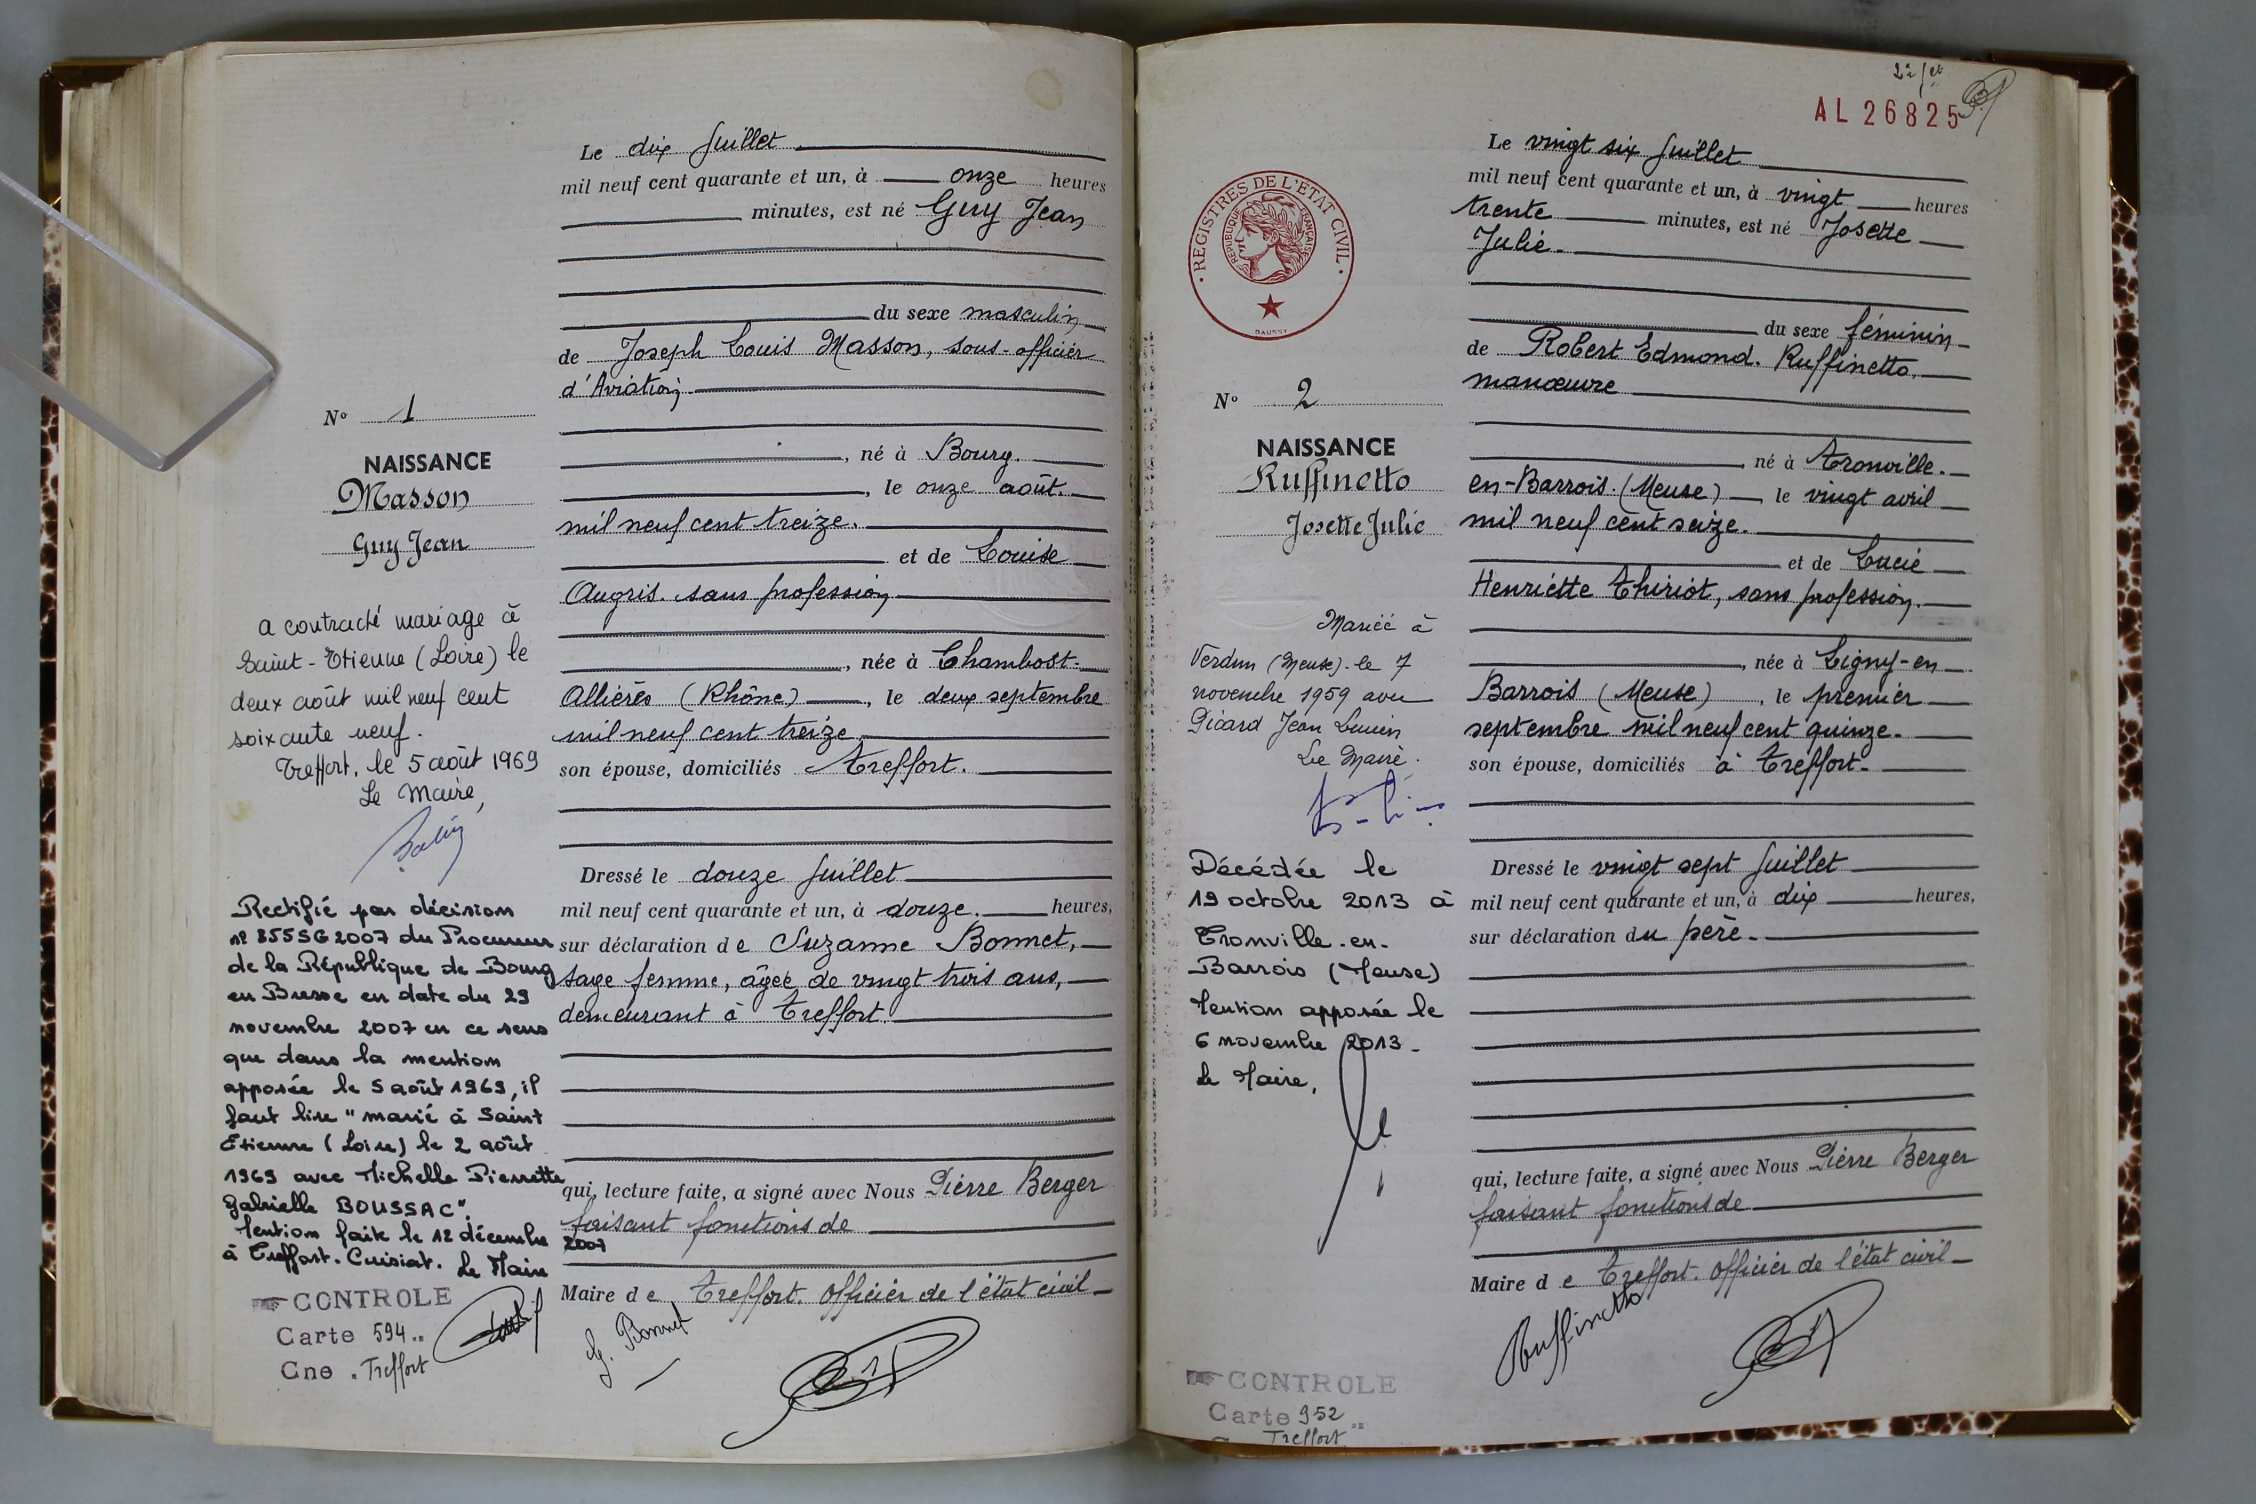 Le dix Juillet
mil neuf cent quarante et un, à onze heures
minutes, est né Guy Jean
du sexe masculin
de Joseph Louis Masson, sous-officier
d'Aviation
, né à Bourg.
, le onze août.
mil neuf cent treize.
et de Louise
Augris. sans profession
, née à Chambost-
Allières (Rhône) , le deux septembre
mil neuf cent treize
son épouse, domiciliés Treffort.
Dressé le douze Juillet
mil neuf cent quarante et un, à douze. heures,
sur déclaration de Suzanne Bonnet,
sage femme, âgée de vingt trois ans,
demeurant à Treffort
qui, lecture faite, a signé avec Nous Pierre Berger
faisant fonctions de
Maire de Treffort. Officier de l'état civil
G. Bonnet
N° 1
NAISSANCE
Masson
Guy Jean
a contracté mariage à
Saint-Etienne (Loire) le
deux août mil neuf cent
soixante neuf.
Treffort, le 5 août 1969
Le Maire,
Rectifié par décision
n° 855SG2007 du Procureur
de la République de Bourg
en Bresse en date du 29
novembre 2007 en ce sens
que dans la mention
apposée le 5 août 1969, il
faut lire "marié à Saint
Etienne (Loire) le 2 août
1969 avec Michelle Pierrette
Gabrielle BOUSSAC".
Mention faite le 12 décembre 2007
à Treffort-Cuisiat. Le Maire
CONTROLE
Carte 594
Cne Treffort
AL 26825
Le vingt six Juillet
mil neuf cent quarante et un, à vingt heures
trente minutes, est né Josette
Julie.
du sexe féminin
de Robert Edmond. Ruffinetto.
manœuvre
, né à Tronville.
en-Barrois. (Meuse) , le vingt avril
mil neuf cent seize.
et de Lucie
Henriette Thiriot, sans profession.
, née à Ligny-en
Barrois (Meuse) , le premier
septembre mil neuf cent quinze.
son épouse, domiciliés à Treffort.
Dressé le vingt sept Juillet
mil neuf cent quarante et un, à dix heures,
sur déclaration du père.
qui, lecture faite, a signé avec Nous Pierre Berger
faisant fonctions de
Maire de Treffort. Officier de l'état civil
Ruffinetto
REGISTRES DE L'ETAT CIVIL
REPUBLIQUE FRANÇAISE
N° 2
NAISSANCE
Ruffinetto
Josette Julie
Mariée à
Verdun (Meuse). le 7
novembre 1959 avec
Picard Jean Lucien
Le Maire.
Décédée le
19 octobre 2013 à
Tronville-en-
Barrois (Meuse)
Mention apposée le
6 novembre 2013.
Le Maire,
CONTROLE
Carte 952
Treffort